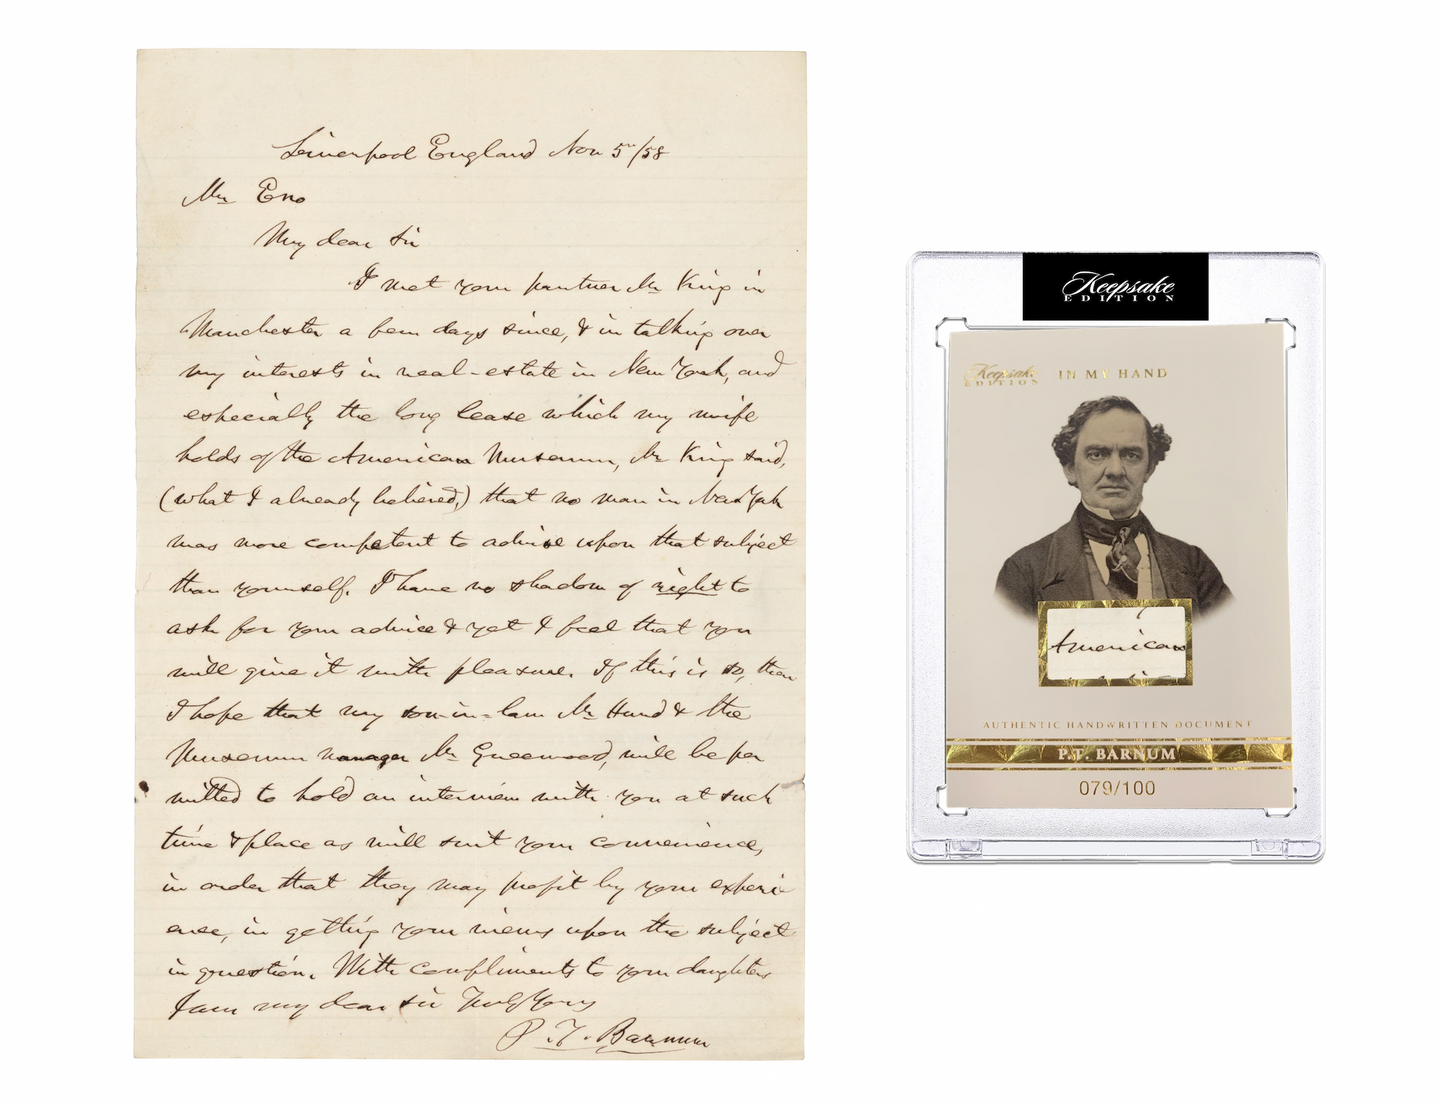 Liverpool England Nov 5th/58
Mr Eno
My dear Sir
I met your partner Mr King in
Manchester a few days since, & in talking over
my interests in real-estate in New York, and
especially the long lease which my wife
holds of the American Museum, Mr King said,
(what I already believed,) that no man in New York
was more competent to advise upon that subject
than yourself. I have no shadow of right to
ask for your advice & yet I feel that you
will give it with pleasure. If this is so, then
I hope that my son-in-law Mr Hurd & the
Museum manager Mr Greenwood, will be per
mitted to hold an interview with you at such
time & place as will suit your convenience,
in order that they may profit by your experi
ence, in getting your views upon the subject
in question. With compliments to your daughters
I am my dear sir Truly Yours
P. T. Barnum
Keepsake
EDITION
Keepsake
EDITION
IN MY HAND
American
AUTHENTIC HANDWRITTEN DOCUMENT
P.T. BARNUM
079/100